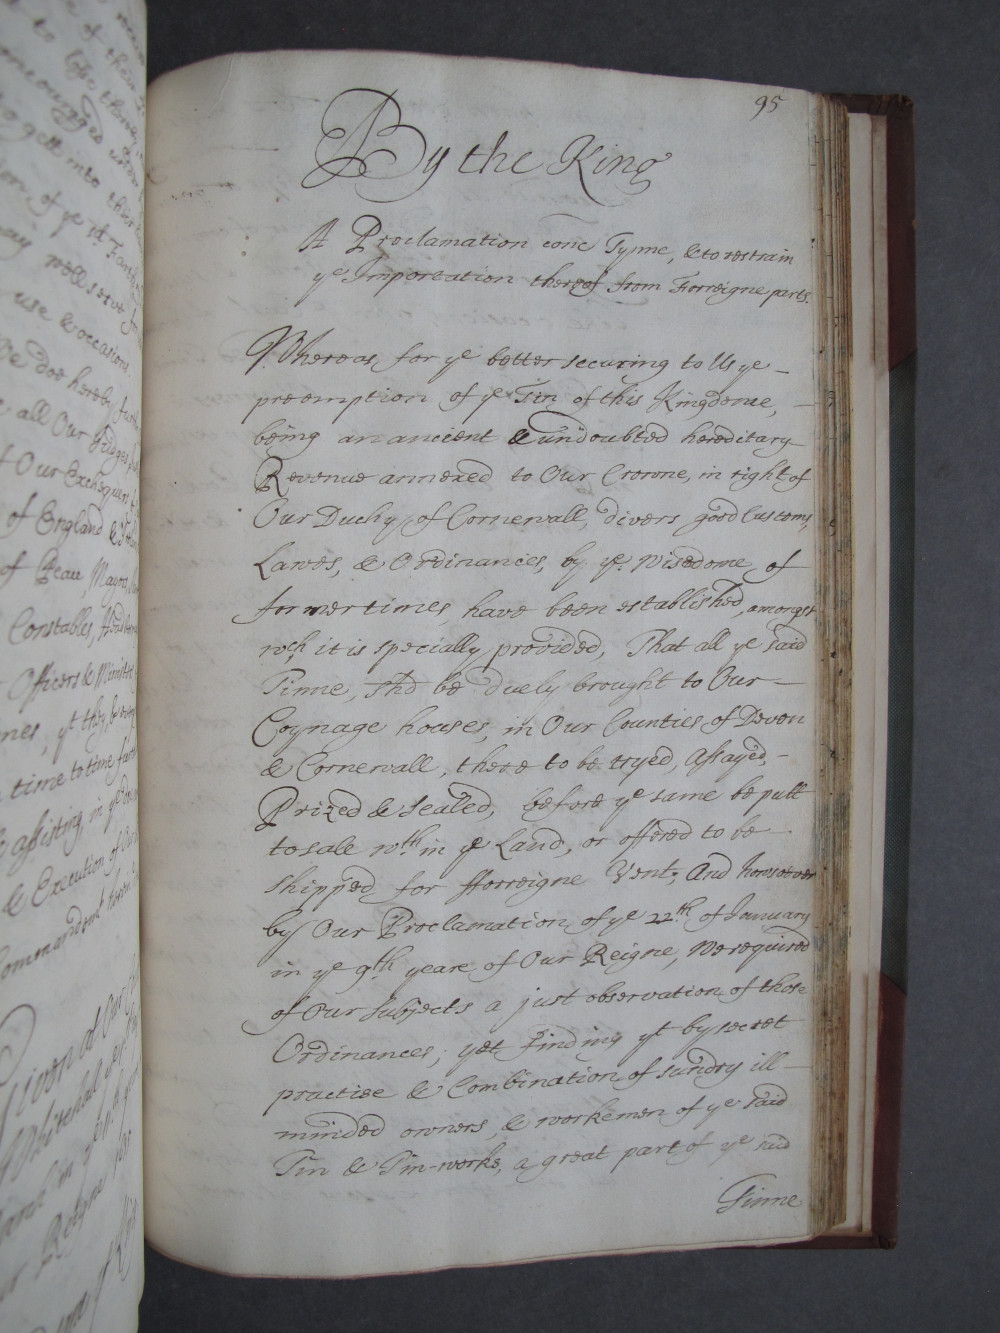 95
By the King
A Proclamation conc Tynne, & to restrain
ye Importation thereof from Forreigne parts.
Whereas, for ye better securing to Us ye
preemption of ye Tin of this Kingdome,
being an ancient & undoubted hereditary
Revenue annexed to Our Crowne, in right of
Our Duchy of Cornewall, divers good Customs,
Lawes, & Ordinances, by ye wisedome of
former times, have been established, amongst
wch it is specially provided, That all ye said
Tinne, shd be duely brought to Our
Coynage houses, in Our Counties of Devon
& Cornewall, there to be tryed, Assayed,
Prized & Sealed, before ye same be putt
to sale wth in ye Land, or offered to be
shipped for fforreigne Vent; And howsoever
by Our Proclamation of ye 22th of January
in ye 9th yeare of Our Reigne, We required
of Our Subjects a just observation of those
Ordinances; yet finding yt by secret
practise & Combination of sundry ill
minded owners & workemen of ye said
Tin & Tin-works, a great part of ye said
Tinne
use & occasions
We doe hereby
all Our Judges
Our Exchequer
of England &
of Peace, Mayors
Constables,
Officers & Ministers
time to time
assisting, in ye
& Execution of Our
Given at Our
Whitehall ye
Reigne